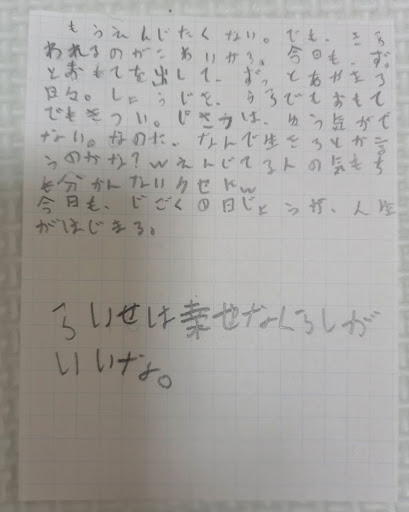 もうえんじたくない。でも、きら
われるのがこわいから、今日も、ず
とおもてを出して、ずっとあがきる
日々。しょうじき、うらでもおもて
でもきつい。じさつは、ゆう気がで
ない。なのに、なんで生きるとかき
うのかな？wえんじてる人の気もち
も分かんないクセにw
今日も、じごくの日じょうが、人生
がはじまる。
らいせは幸せなくらしが
いいな。